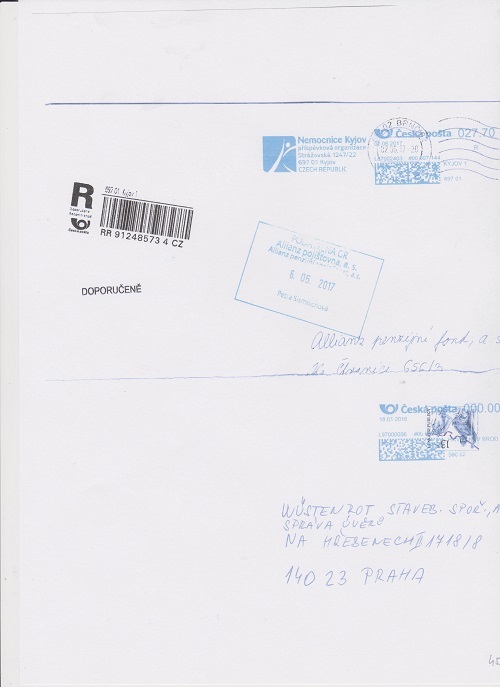 02 BRNO
Nemocnice Kyjov
příspěvková organizace
Strážovská 1247/22
697 01 Kyjov
CZECH REPUBLIC
Česká pošta 027 70
KYJOV 1
697 01
R
697 01 Kyjov 1
RR 91248573 4 CZ
DOPORUČENĚ
Allianz pojišťovna, a. s.
6. 06. 2017
Allianz penzijní fond, a s
Ke Štvanici 656/3
Česká pošta 000.00
WÜSTENROT STAVEB. SPOŘ., A
SPRÁVA ÚVĚRŮ
NA HŘEBENECH II 1718/8
140 23 PRAHA
45